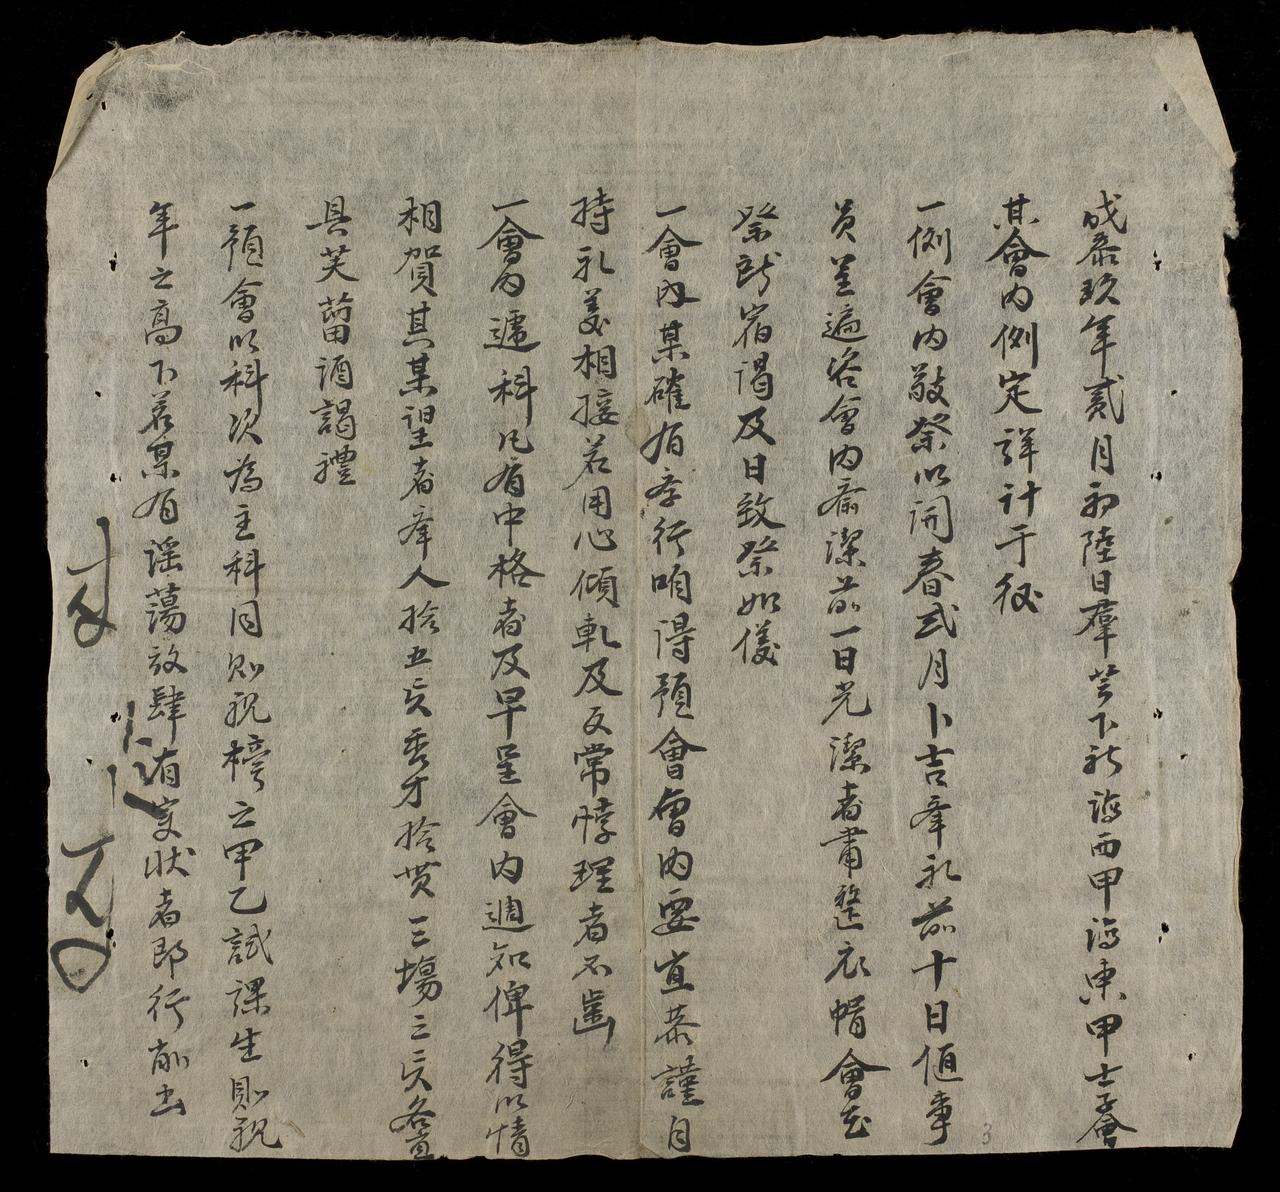 成泰玖年貳月初陸日羣芳下社沔西甲沔東甲士會
其會内例定詳計于後
一例會内敬祭以開春貳月卜吉奉礼前十日值事
員並遍咨會内齋潔前一日光潔者肅整衣帽會
祭所宿谒及日致祭如儀
一會内某確有孝行咱得預會會内要宜恭謹自
持礼義相接若用心傾軋及反常悖理者不齒
一會内遞科凡有中格者及早呈會内週知俾得以情
相賀其某望者奉人拾五貫秀才拾貫三場三貫各宜
具芙蒥酒謁禮
一預會以科次為主科同則視榜之甲乙試課生則視
年之高下若某有謡蕩放肆有实狀者即行削出